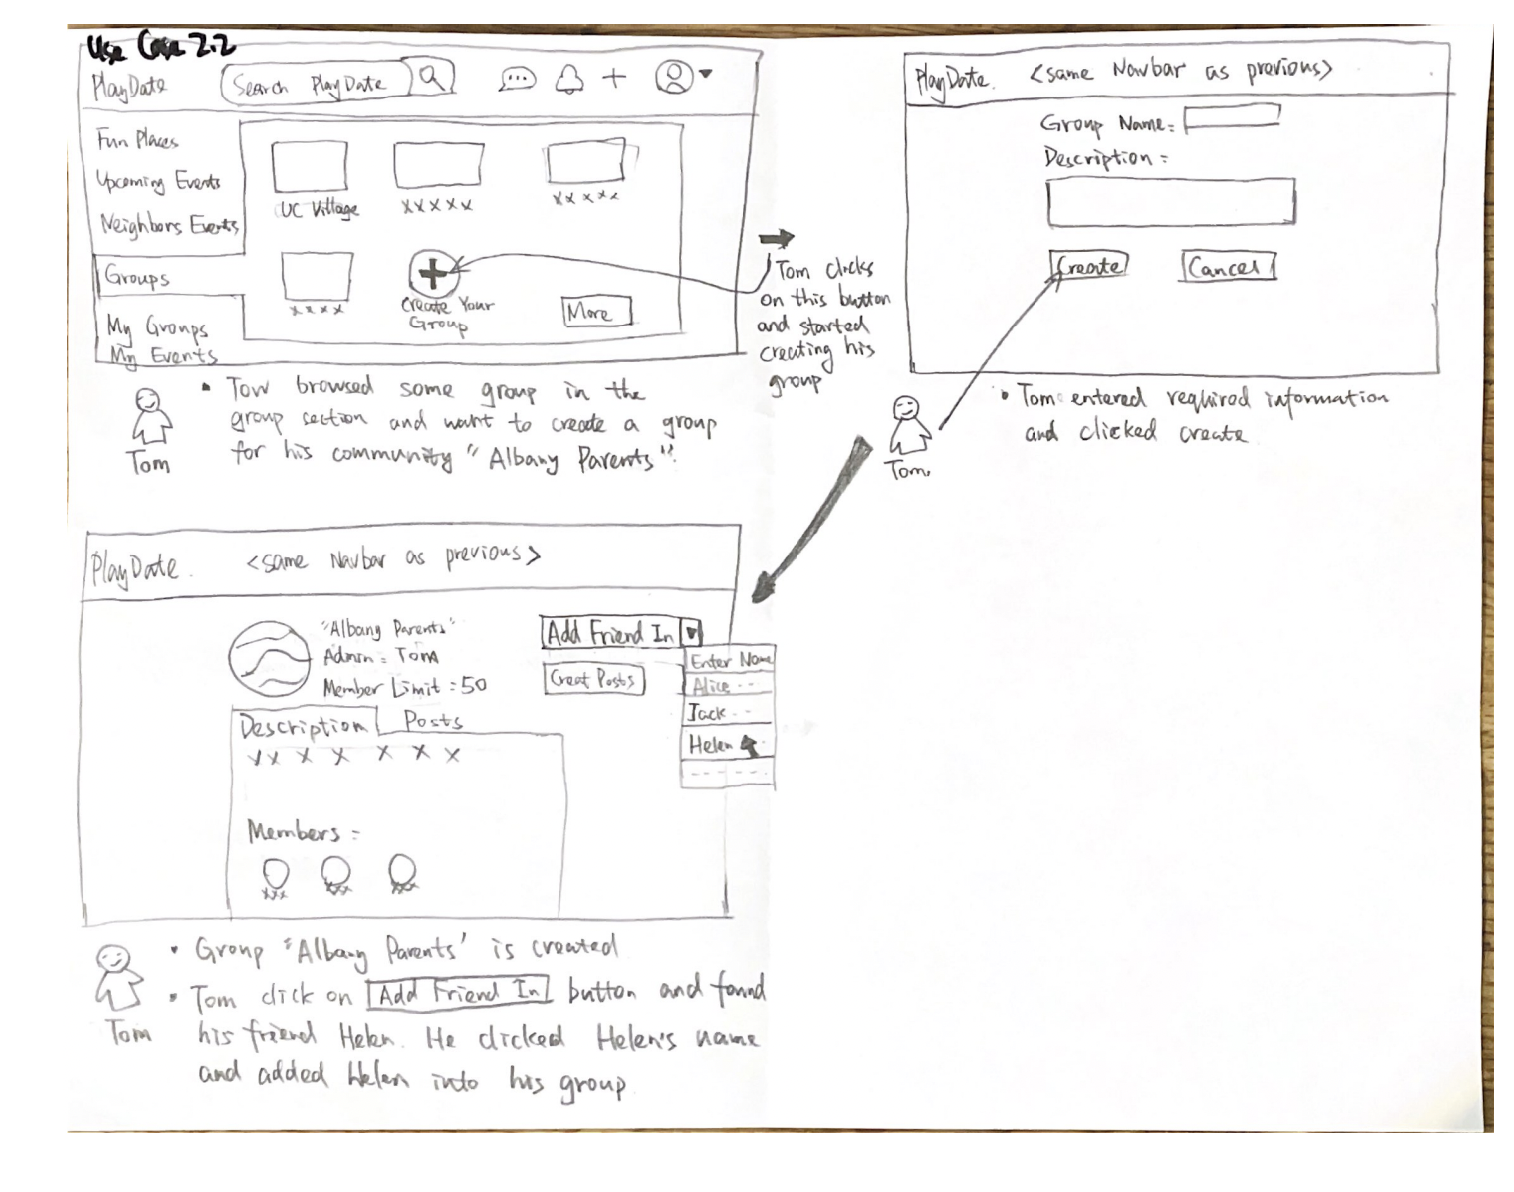 Use Case 2.2
PlayDate
Search PlayDate
Fun Places
Upcoming Events
Neighbors Events
Groups
My Groups
My Events
UC Village
xxxxx
xxxxx
xxxx
Create Your
Group
More
Tom clicks
on this button
and started
creating his
group
Tom
• Tow browsed some group in the
group section and want to create a group
for his community "Albany Parents".
PlayDate. <same Navbar as previous>
Group Name:
Description:
Create
Cancel
Tom.
• Tom entered required information
and clicked create
PlayDate. <same Navbar as previous>
"Albany Parents"
Admin: Tom
Member Limit: 50
Add Friend In
Creat Posts
Enter Name
Alice --
Jack --
Helen
-- ---
Description
Posts
xx x x x x x
Members:
xxx
xxx
xxx
Tom
• Group "Albany Parents' is created
• Tom click on Add Friend In button and found
his friend Helen. He clicked Helen's name
and added Helen into his group